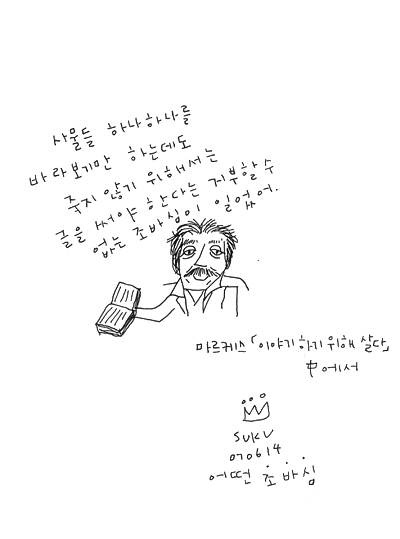 사물들 하나하나를
바라보기만 하는데도
죽지 않기 위해서는
글을 써야 한다는 거부할 수
없는 조바심이 일었어.
마르케스「이야기하기 위해 살다」
中에서
SUKU
070614
어떤 조바심